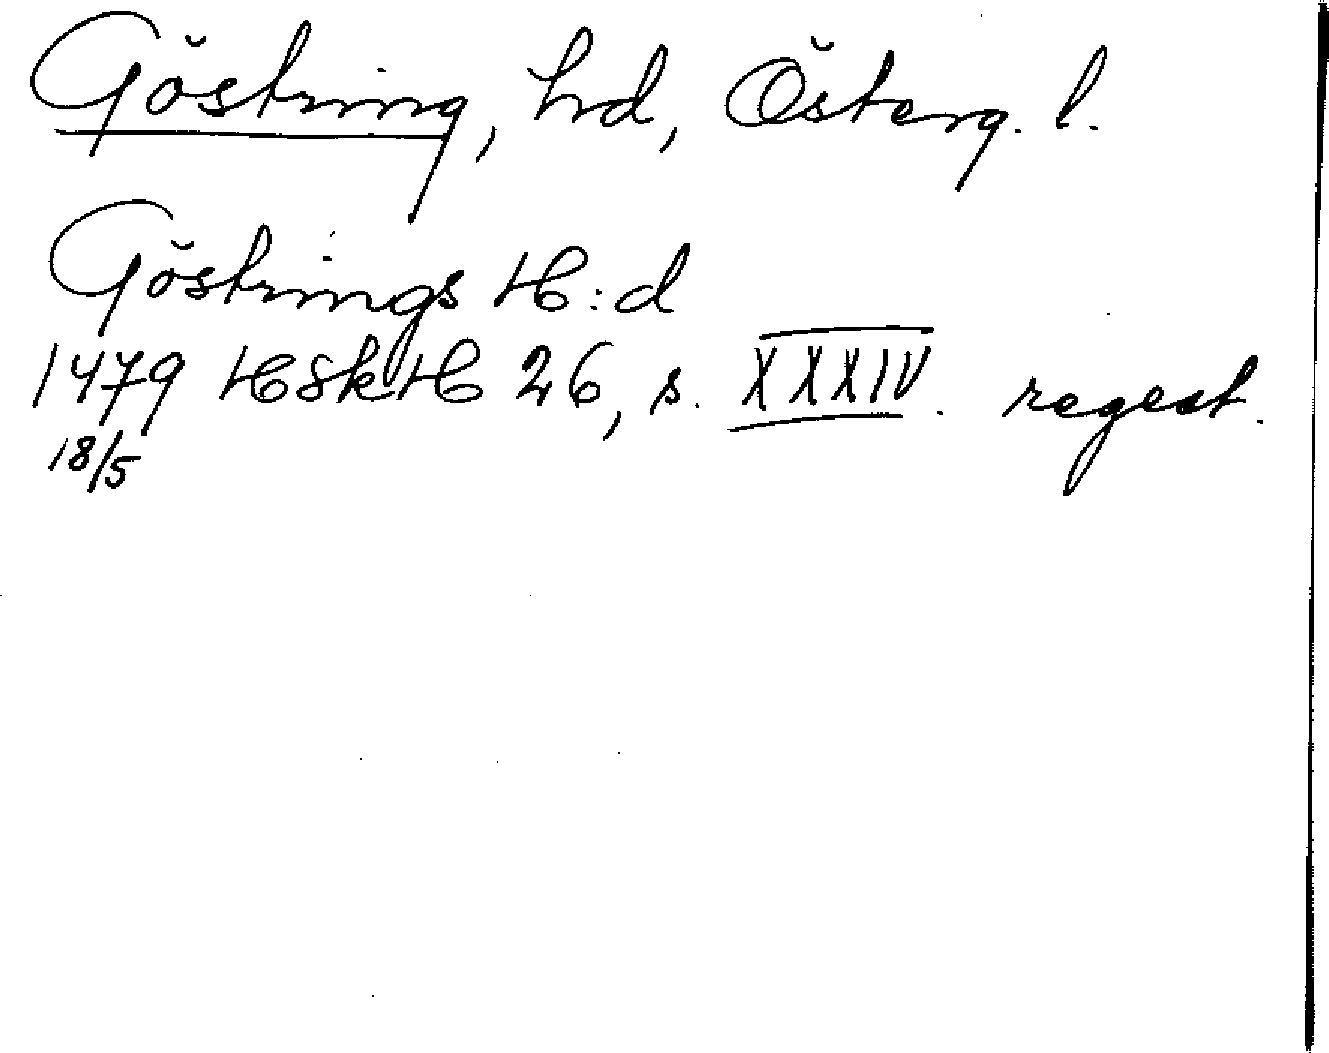 Göstring, hd, Österg. l.
Göstrings H:d
1479 HSkH 26, s. XXXIV. regest.
18/5